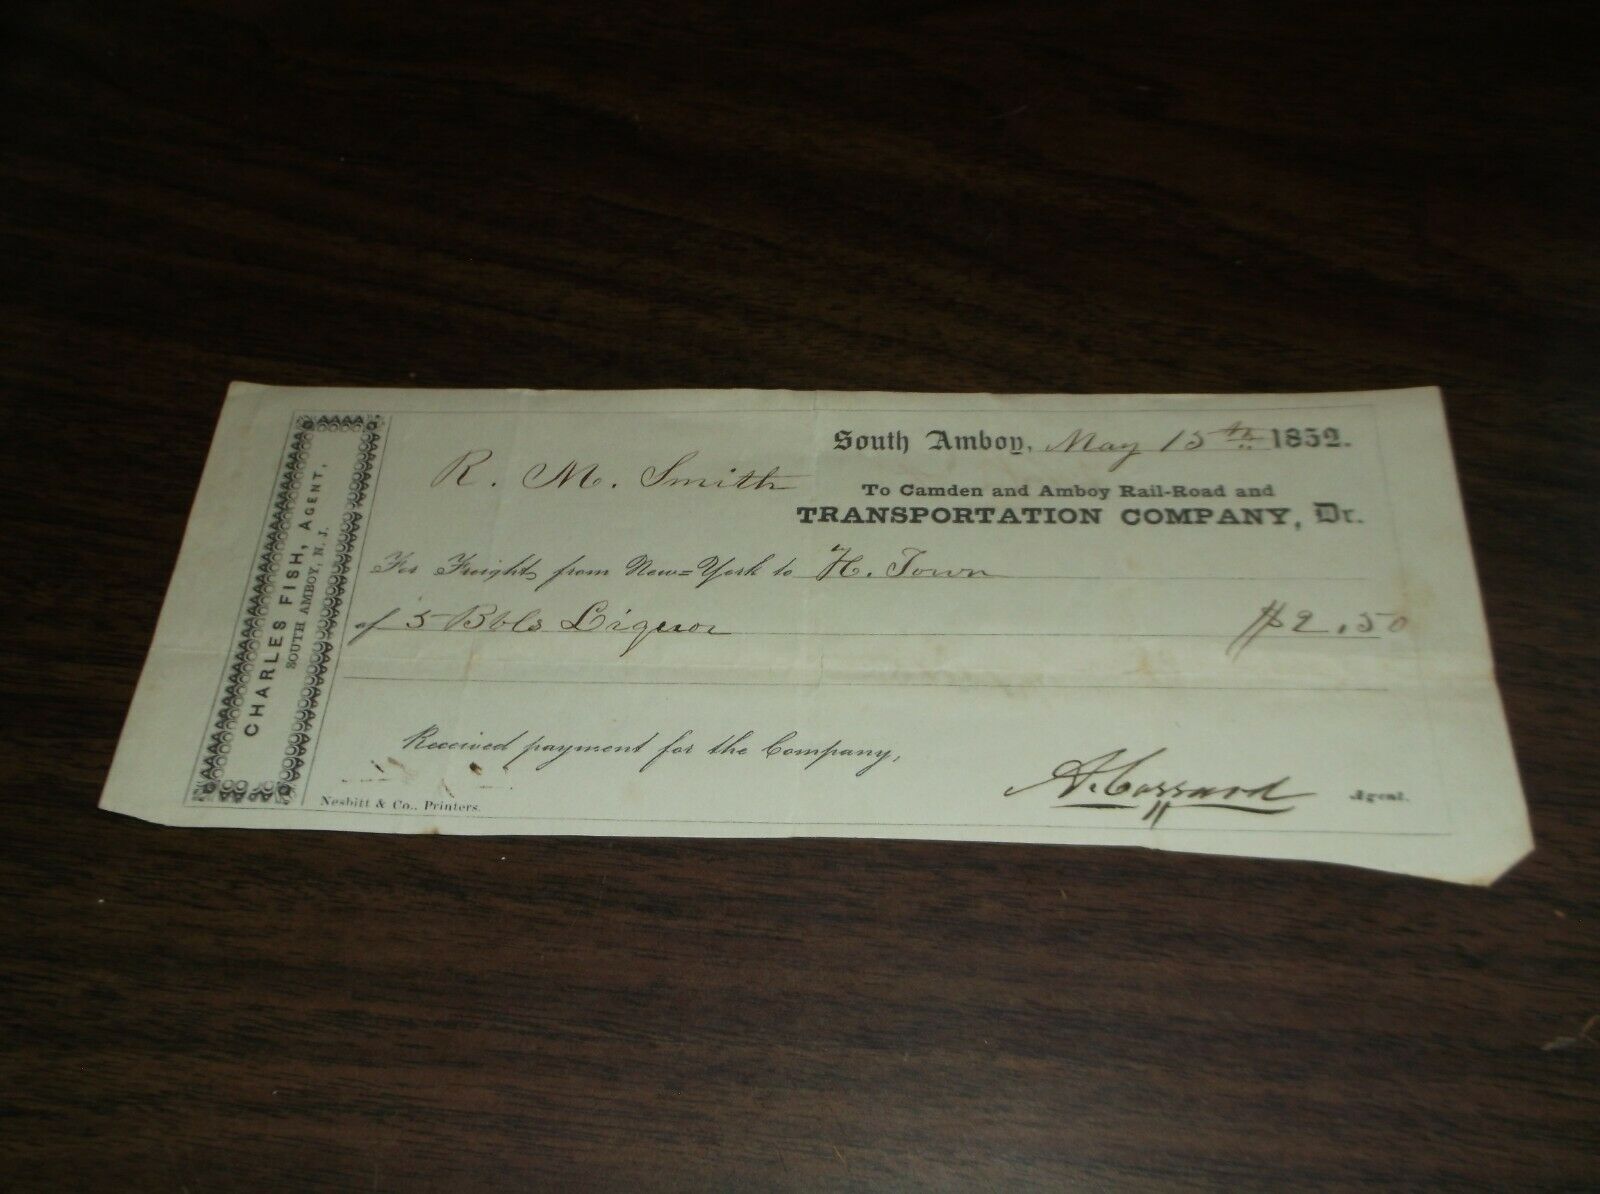 CHARLES FISH, AGENT,
SOUTH AMBOY, N. J.
South Amboy, May 15th 1852.
R. M. Smith
To Camden and Amboy Rail-Road and
TRANSPORTATION COMPANY, Dr.
For Freight from New-York to H. Town
of 5 Bbls Liquor $2.50
Received payment for the Company,
A. Cossard Agent.
Nesbitt & Co., Printers.